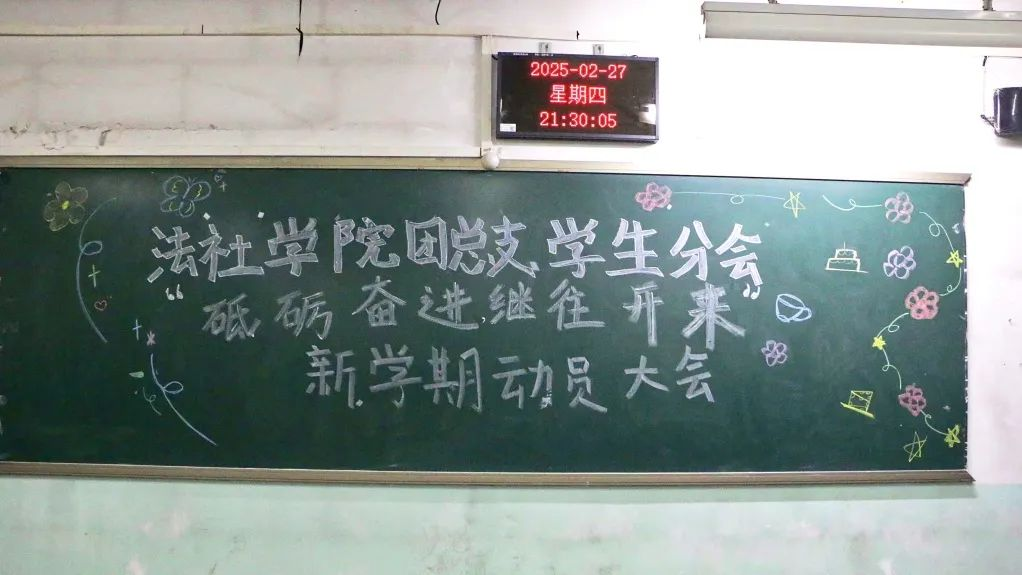 2025-02-27
星期四
21:30:05
法社学院团总支学生分会
“砥砺奋进继往开来”
新学期动员大会